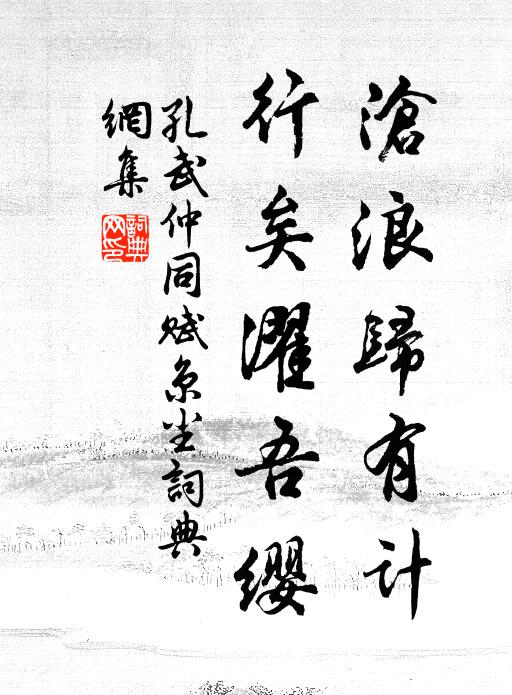 滄浪歸有計
行矣濯吾纓
孔武仲同賦京塵詞典
網集
詞典网印